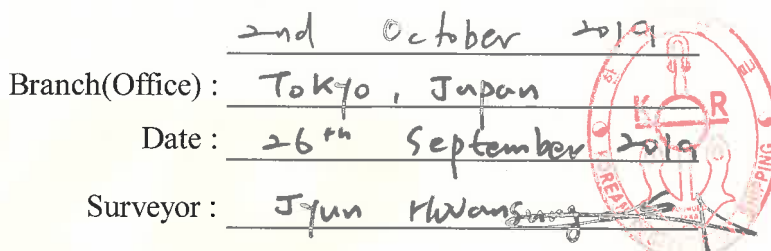 2nd October 2019
Branch(Office) : Tokyo, Japan
Date : 26th September 2019
Surveyor : Jyun Hwang
K R
KOREAN
PPING